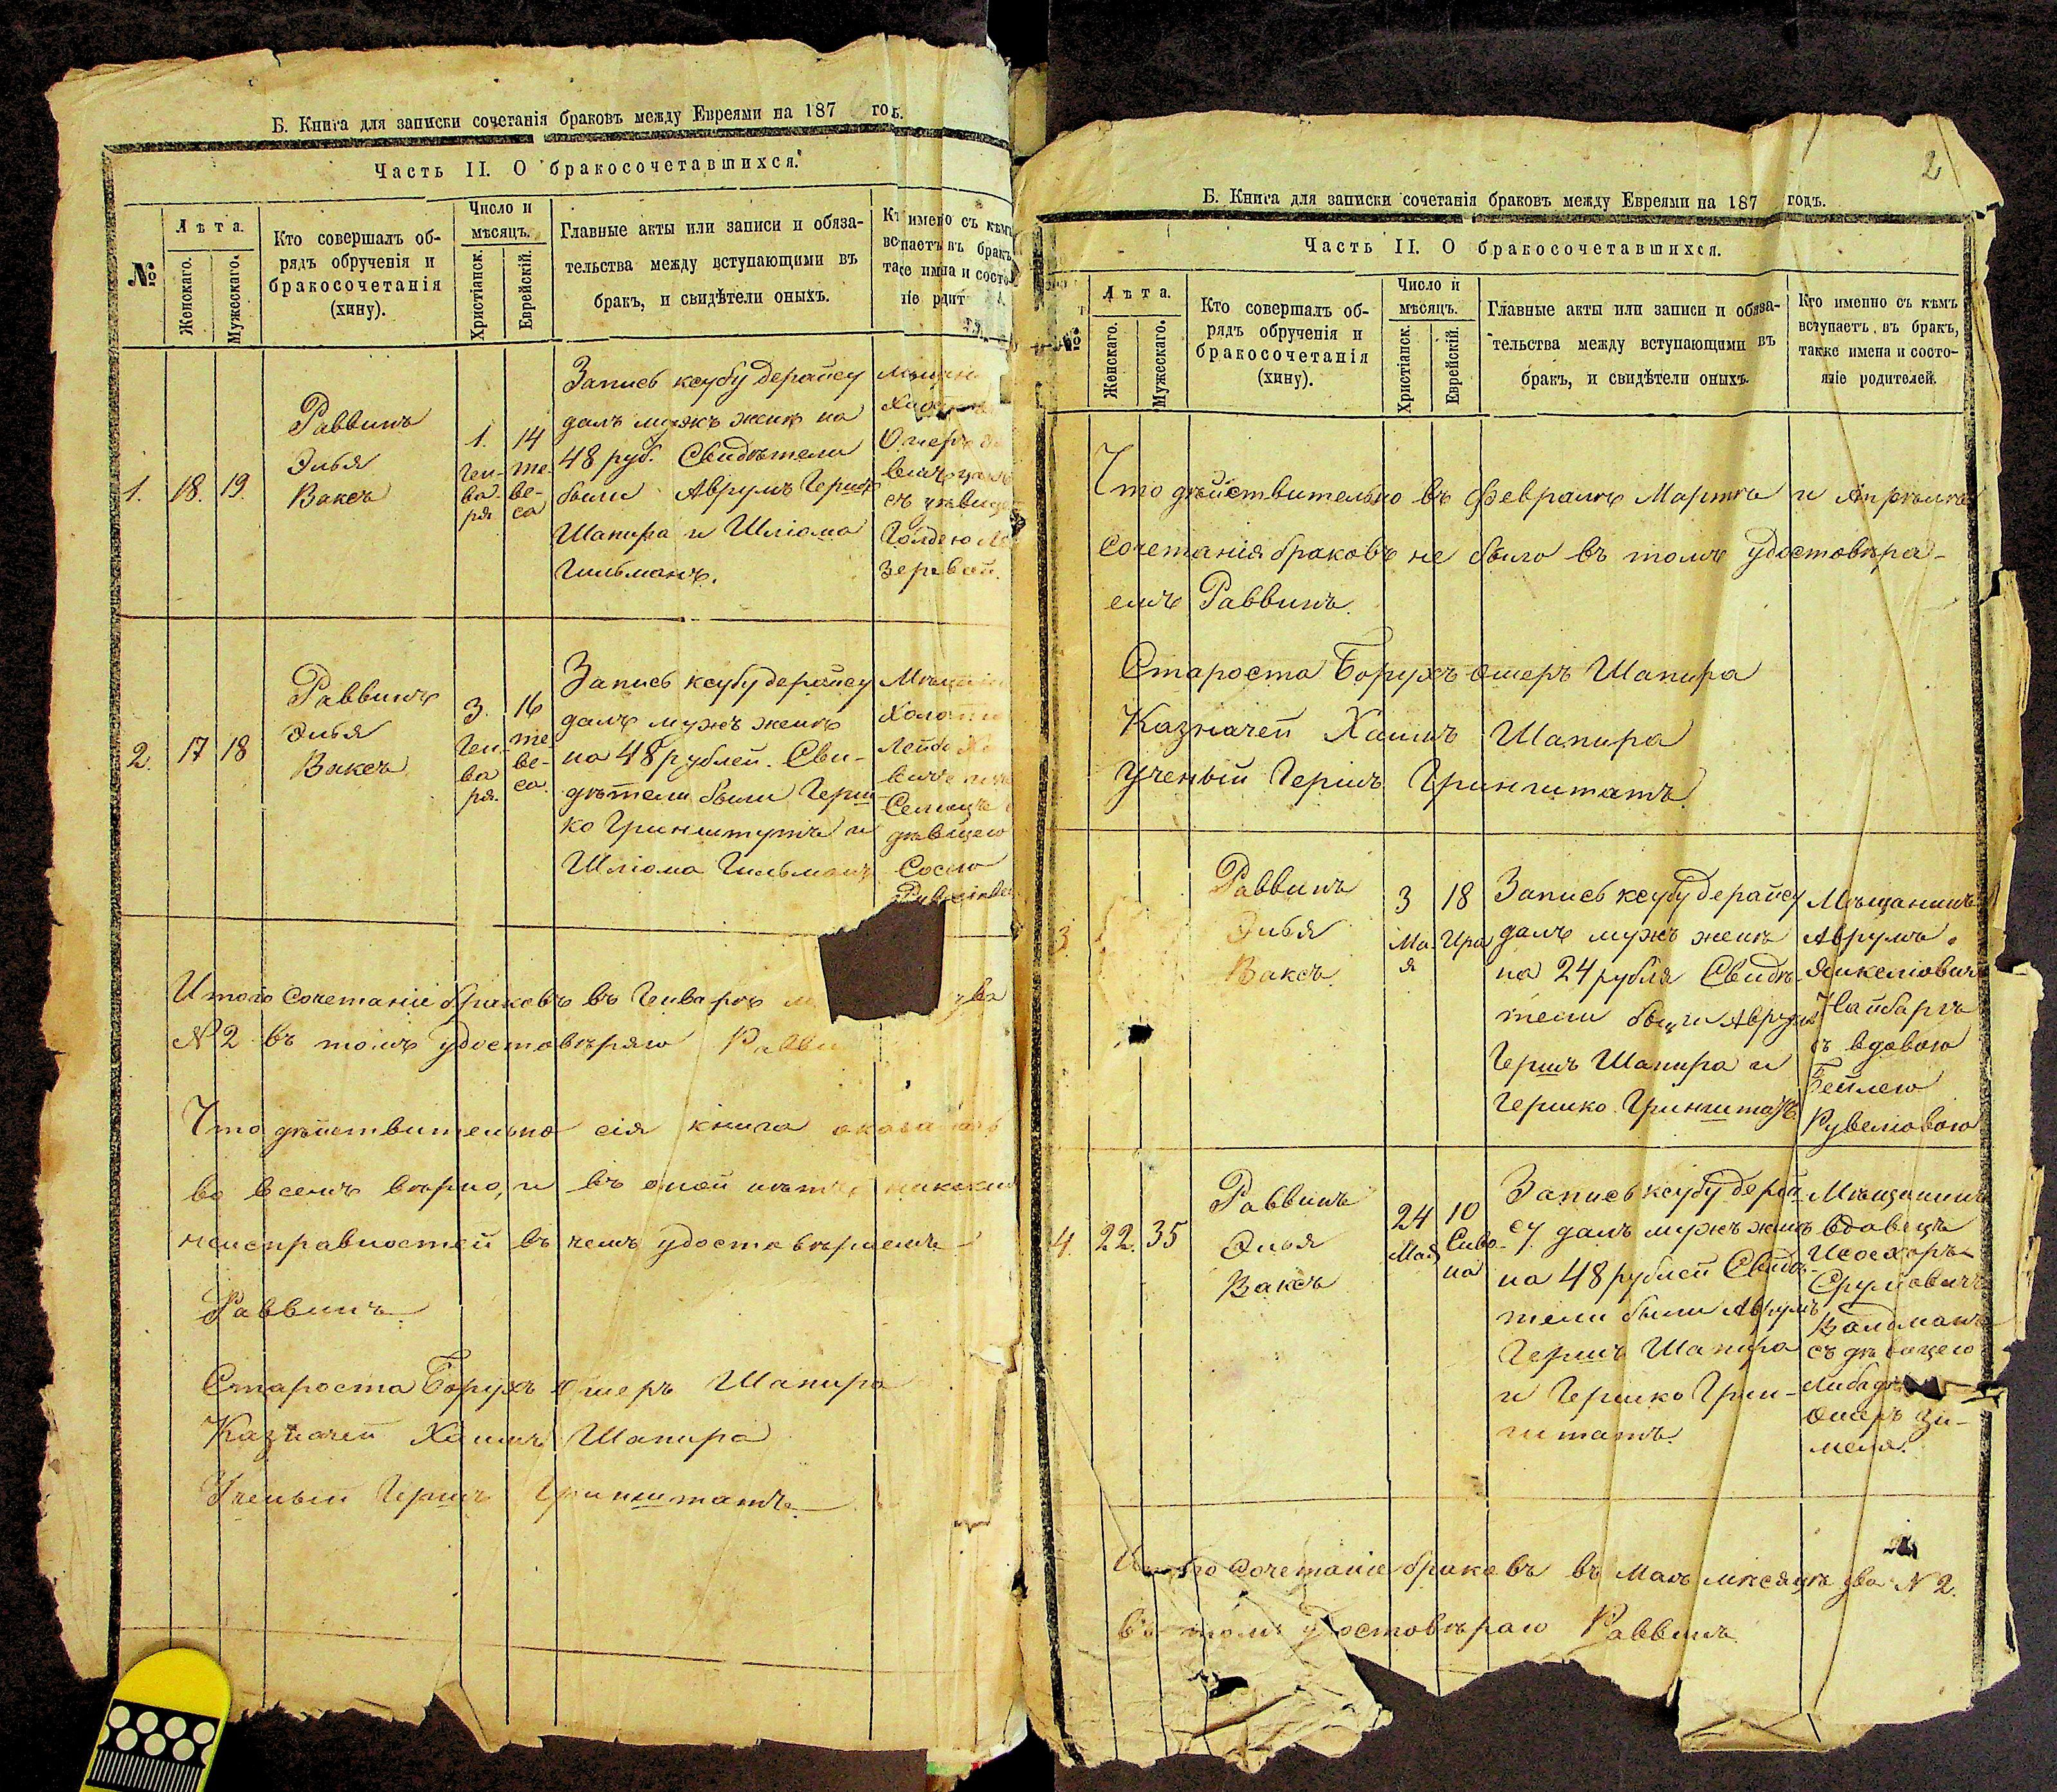 Б. Книга для записки сочетанія браковъ между Евреями на 187 годъ.
Часть II. О бракосочетавшихся.
№
Лѣта.
Женскаго.
Мужескаго.
Кто совершалъ об-
рядъ обрученія и
бракосочетанія
(хину).
Число и
мѣсяцъ.
Христіанск.
Еврейскій.
Главные акты или записи и обяза-
тельства между вступающими въ
бракъ, и свидѣтели оныхъ.
съ кѣмъ
въ бракъ
и состо-
1.
18.
19.
Раввинъ
Элья
Ваксъ
1.
Ген-
ва-
ря
14
те-
ве-
са
Запись ксубу дерайсу
далъ мужъ женѣ на
48 руб. Свидѣтели
были Аврумъ Гершъ
Шапира и Шліома
Гильманъ.
Голдою
2.
17
18
Раввинъ
Элья
Ваксъ
3.
Ген-
ва
ря.
16
те-
ве-
са.
Запись ксубу дерайсу
далъ мужъ женѣ
на 48 рублей. Сви-
дѣтели были Герш
ко Гринштутъ и
Шліома Гильманъ
Лейба
дѣвицею
Сосею
Итого сочетаніе браковъ въ Генварѣ два
№ 2 въ томъ удостовѣряю
Что дѣйствительно сія книга оказалась
во всемъ вѣрно, и въ оной нѣтъ никакихъ
неисправностей въ чемъ удостовѣряемъ
Раввинъ
Староста Борухъ Ошеръ Шапира
Казначей Хаимъ Шапира
Ученый Гершъ Гринштатъ.
2
Б. Книга для записки сочетанія браковъ между Евреями на 187 годъ.
Часть II. О бракосочетавшихся.
№
Лѣта.
Женскаго.
Мужескаго.
Кто совершалъ об-
рядъ обрученія и
бракосочетанія
(хину).
Число и
мѣсяцъ.
Христіанск.
Еврейскій.
Главные акты или записи и обяза-
тельства между вступающими въ
бракъ, и свидѣтели оныхъ.
Кто именно съ кѣмъ
вступаетъ въ бракъ,
также имена и состо-
яніе родителей.
Что дѣйствительно въ Февралѣ Мартѣ и Апрѣлѣ
сочетанія браковъ не было въ томъ удостовѣря-
емъ Раввинъ.
Староста Борухъ Ошеръ Шапира
Казначей Хаимъ Шапира
Ученый Гершъ Гринштатъ.
3
Раввинъ
Элья
Ваксъ.
3
Ма-
я
18
Ира
Запись ксубу дерайсу
далъ мужъ женѣ
на 24 рубля Свидѣ-
тели были Аврумъ
Гершъ Шапира и
Гершко Гринштатъ
Мѣщанинъ
Аврумъ
Янкеліовичъ
Найбаргъ
съ вдовою
Бейлею
Рувеліовою
4.
22.
35
Раввинъ
Элья
Ваксъ
24
Мая
10
Сиво-
на
Запись ксубу дерай-
су далъ мужъ женѣ
на 48 рублей Свидѣ-
тели были Аврумъ
Гершъ Шапира
и Гершко Грин-
штатъ.
Мѣщанинъ
вдовецъ
Исосхоръ
Сруліовичъ
Валдманъ
съ дѣвицею
Ошеръ Зи-
меля.
сочетаніе браковъ въ Маѣ мѣсяцѣ два № 2.
въ томъ удостовѣряю Раввинъ